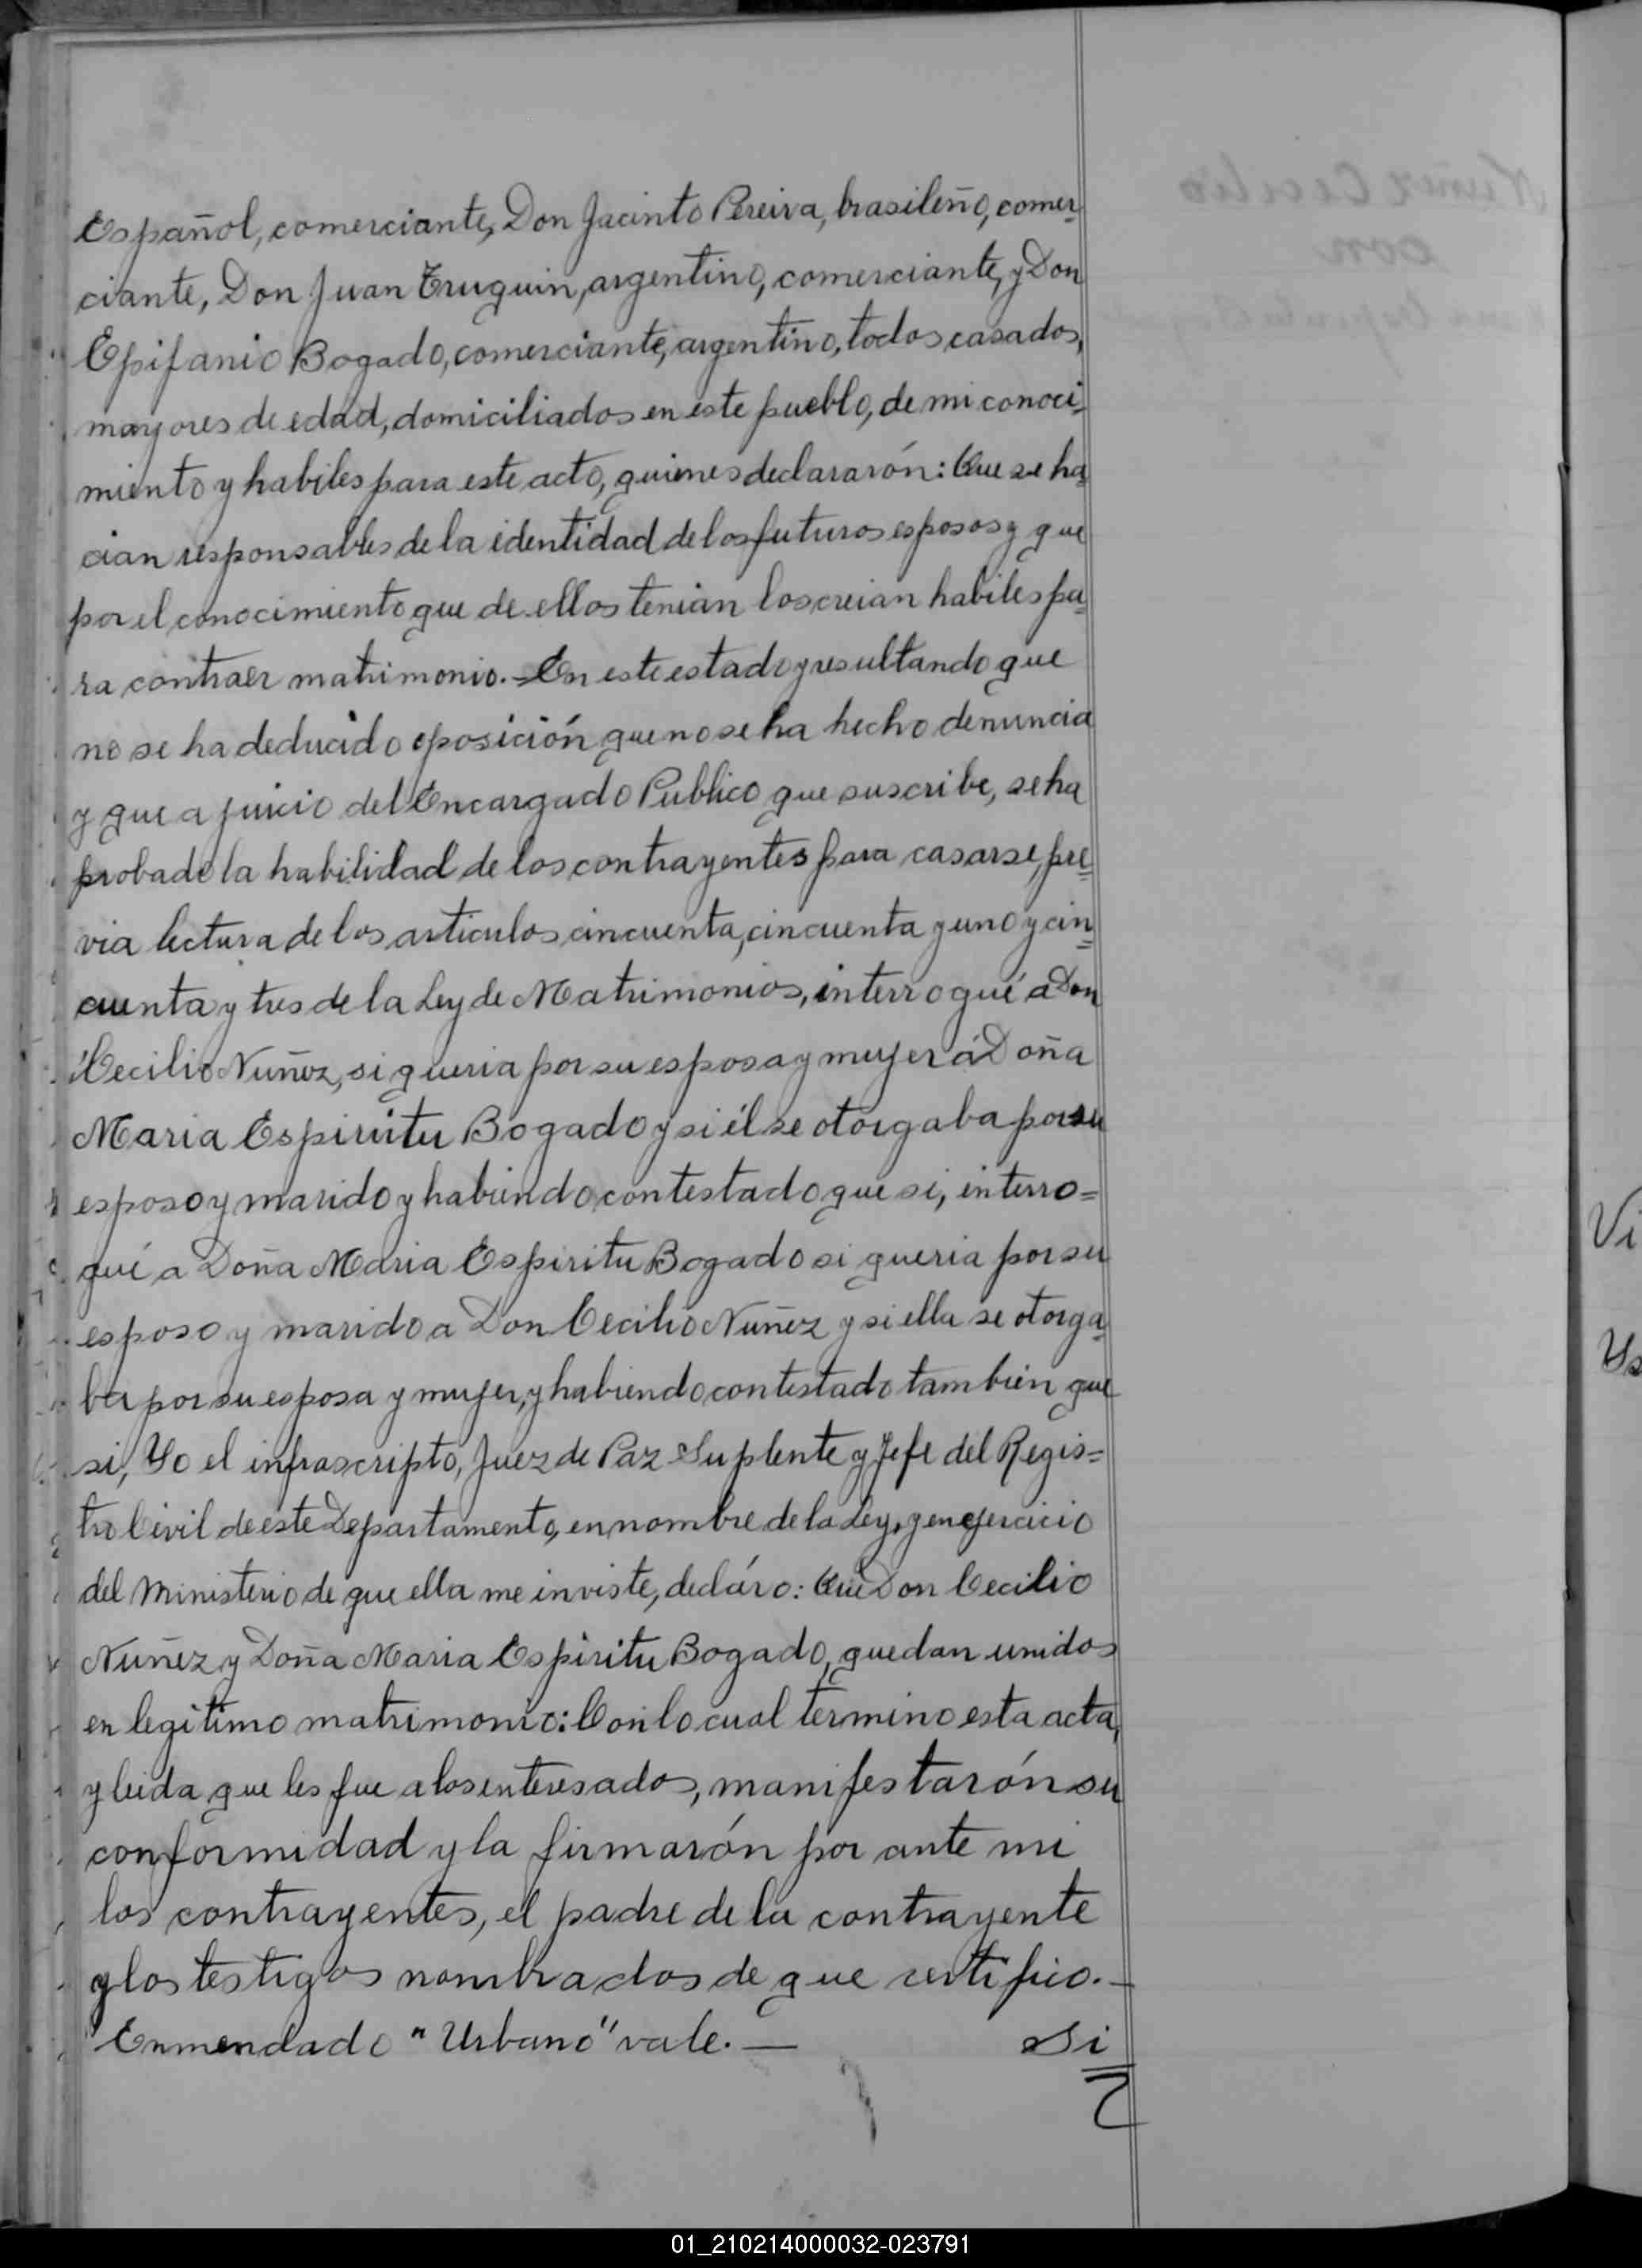 Español, comerciante, Don Jacinto Pereira, brasileño, comer-
ciante, Don Juan Truquin, argentino, comerciante, y Don
Epifanio Bogado, comerciante, argentino, todos casados,
mayores de edad, domiciliados en este pueblo, de mi conoci-
miento y habiles para este acto, quienes declararón: Que se ha-
cian responsables de la identidad de los futuros esposos y que
por el conocimiento que de ellos tenian los creian habiles pa-
ra contraer matrimonio.- En este estado y resultando que
no se ha deducido oposición que no se ha hecho denuncia
y que a juicio del Encargado Publico que suscribe, se ha
probado la habilidad de los contrayentes para casarse, pre=
via lectura de los articulos cincuenta, cincuenta y uno y cin=
cuenta y tres de la Ley de Matrimonios, interrogué á Don
Cecilio Nuñez, si queria por su esposa y mujer á Doña
Maria Espiritu Bogado y si él se otorgaba por su
esposo y marido y habiendo contestado que si, interro=
gué a Doña Maria Espiritu Bogado si queria por su
esposo y marido a Don Cecilio Nuñez y si ella se otorga-
ba por su esposa y mujer, y habiendo contestado tambien que
si, Yo el infrascripto, Juez de Paz Suplente y Jefe del Regis=
tro Civil de este Departamento, en nombre de la Ley, y en ejercicio
del Ministerio de que ella me inviste, decláro: Que Don Cecilio
Nuñez y Doña Maria Espiritu Bogado, quedan unidos
en legitimo matrimonio: Con lo cual termino esta acta,
y leida que les fue a los interesados, manifestarón su
conformidad y la firmarón por ante mi
los contrayentes, el padre de la contrayente
y los testigos nombrados de que certifico.-
Enmendado "Urbano" vale.-
Si
Vi
01_210214000032-023791